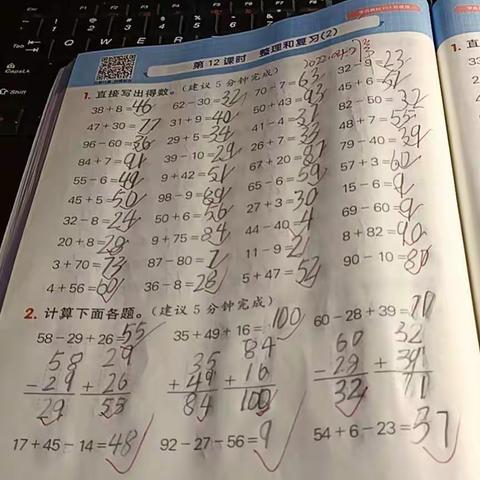 第 12 课时 整理和复习(2)
1. 直接写出得数。(建议 5 分钟完成)
38+8=46 62-30=32 70-7=63 32-9=23
47+30=77 31+9=40 50+43=93 45+6=51
96-60=36 29+5=34 41-4=37 82-50=32
84+7=91 39-10=29 26+7=33 48+7=55
55-6=49 9+42=51 67+20=87 79-40=39
45+5=50 98-9=89 65-6=59 57+3=60
32-8=24 50+6=56 27+3=30 15-6=9
20+8=28 9+75=84 44-40=4 69-60=9
3+70=73 87-80=7 11-9=2 8+82=90
4+56=60 36-8=28 5+47=52 90-10=80
2. 计算下面各题。(建议 5 分钟完成)
58-29+26=55 35+49+16=100 60-28+39=
58 29 35 84 60 32
-29 +26 +49 +16 - + 39
29 55 84 100 32 71
17+45-14=48 92-27-56=9 54+6-23=37